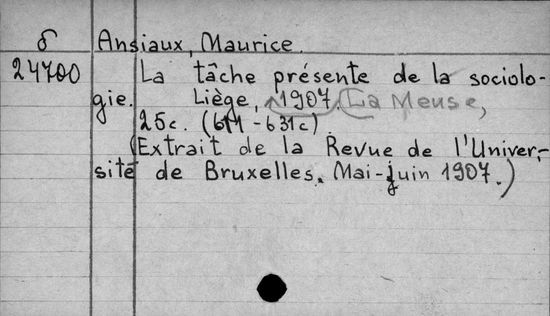 δ Ansiaux, Maurice.
24700 La tâche présente de la sociolo-
gie. Liège, 1907. (La Meuse,
25c. (611-631c)
(Extrait de la Revue de l'Univer-
sité de Bruxelles. Mai-juin 1907.)